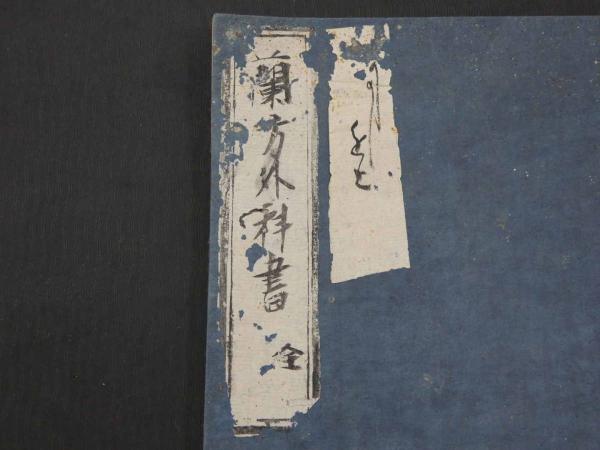 蘭方外科書
全